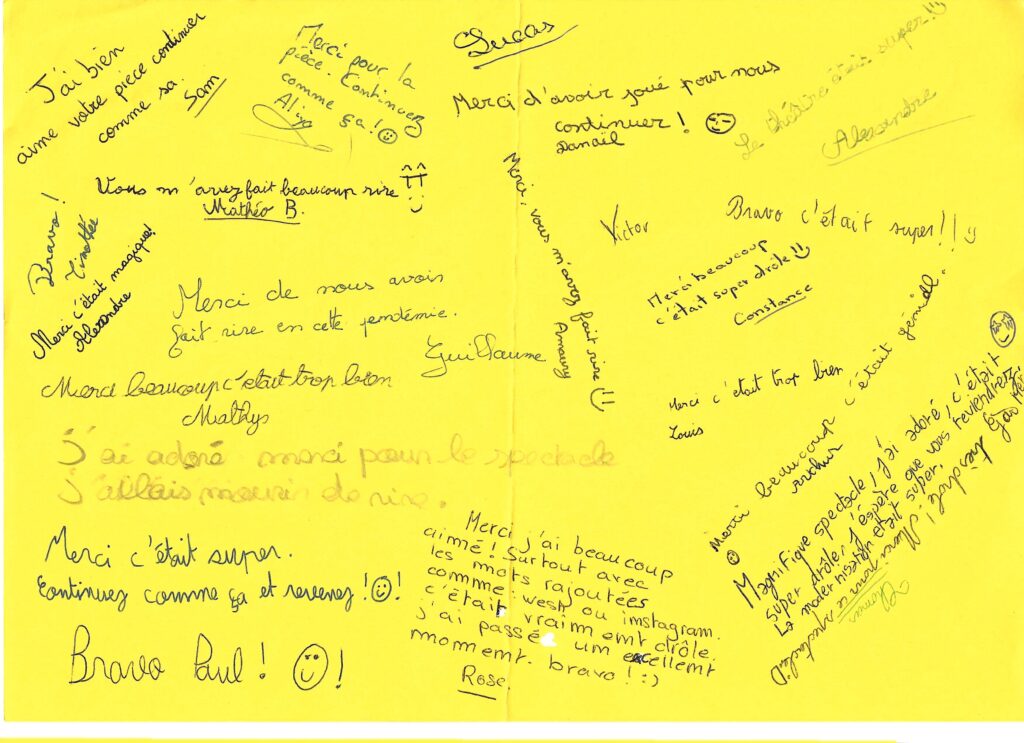 J'ai bien
aimé votre pièce continuer
comme sa.
Sam
Merci pour la
pièce. Continuez
comme ça !
Lucas
Merci d'avoir joué pour nous
continuer !
Danaël
Le théâtre était super !!
Alexandre
Vous m'avez fait beaucoup rire
Mathéo B.
Bravo !
Timothée
Merci c'était magique!
Alexandre
Merci, vous m'avez fait rire !!
Amaury
Victor
Bravo c'était super!!
Merci beaucoup
c'était super drôle !!
Constance
Merci de nous avoir
fait rire en cette pendémie.
Guillaume
Merci beaucoup c'etait trop bien
Mathys
Merci c'était trop bien
Louis
j'ai adoré merci pour le spectacle
j'allais mourir de rire.
Merci beaucoup c'était génial.
Arthur
Magnifique spectacle, j'ai adoré, c'était
super drôle, j'espère que vous reviendrez,
La modernisation était super.
Merci c'était super.
Continuez comme ça et revenez !!
Bravo Paul ! !
Merci j'ai beaucoup
aimé ! Surtout avec
les mots rajoutées
comme: wesh ou instagram.
c'était vraiment drôle
j'ai passé un excellent
moment. bravo ! :)
Rose
Thomas